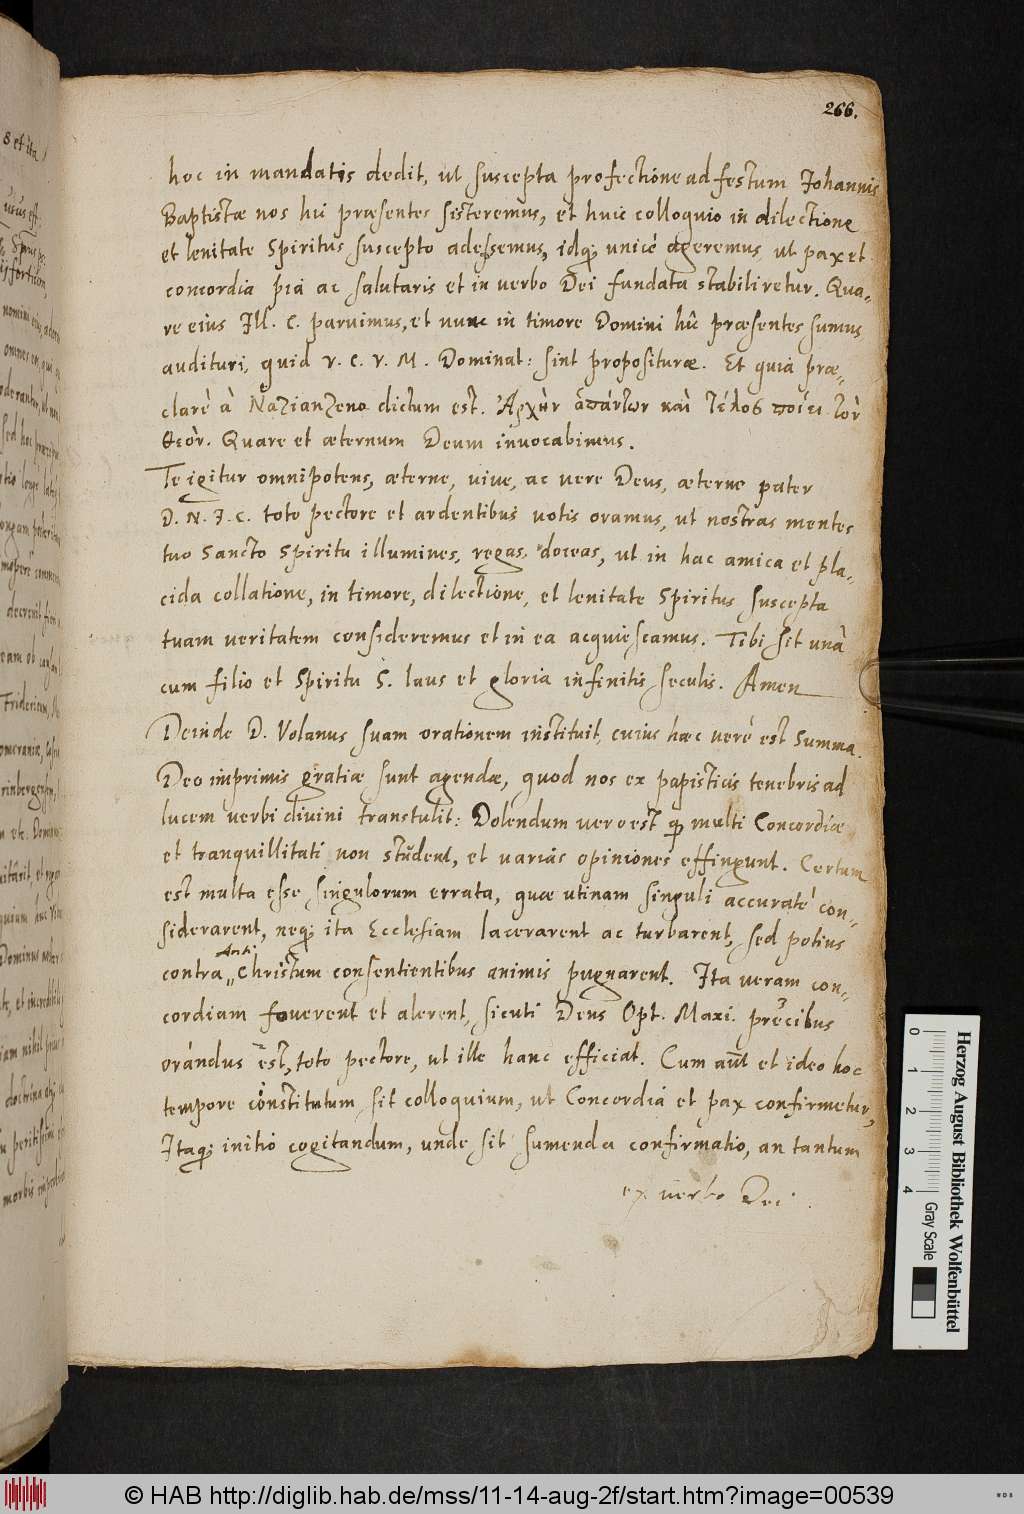 266.
hoc in mandatis dedit, ut suscepta profectione ad festum Johannis
Baptistæ nos hîc præsentes sisteremus, et huic colloquio in dilectione
et lenitate Spiritus suscepto adessemus, idq; unicè ageremus ut pax et
concordia pia ac salutaris et in verbo Dei fundata stabiliretur. Qua-
re eius Ill. C. paruimus, et nunc in timore Domini hîc præsentes sumus
audituri, quid V. C. V. M. Dominat: sint proposituræ. Et quia præ-
clarè à Nazianzeno dictum est. Ἀρχὴν ἁπάντων καὶ τέλος ποίει τὸν
θεόν. Quare et æternum Deum invocabimus.
Te igitur omnipotens, æterne, vive, ac vere Deus, æterne pater
D. N. J. C. toto pectore et ardentibus votis oramus, ut nostras mentes
tuo Sancto Spiritu illumines, regas, doceas, ut in hac amica et pla-
cida collatione, in timore, dilectione, et lenitate Spiritus suscepta
tuam veritatem consideremus et in ea acquiescamus. Tibi sit unà
cum filio et Spiritu S. laus et gloria infinitis seculis. Amen
Deinde D. Volanus suam orationem instituit, cuius hæc verè est Summa.
Deo imprimis gratiæ sunt agendæ, quod nos ex papisticis tenebris ad
lucem verbi divini transtulit: Dolendum vero est q; multi Concordiæ
et tranquillitati non student, et varias opiniones effingunt. Certum
est multa esse singulorum errata, quæ utinam singuli accuratè con-
siderarent, neq; ita Ecclesiam lacerarent ac turbarent, sed potius
Anti
contra,, Christum consentientibus animis pugnarent. Ita veram con-
cordiam foverent et alerent, sicuti Deus Opt. Maxi. precibus
orandus est, toto pectore, ut ille hanc efficiat. Cum aut et ideo hoc
tempore constitutum sit colloquium, ut Concordia et pax confirmetur,
Itaq; initio cogitandum, unde sit sumenda confirmatio, an tantum
ex verbo Dei
0 1 2 3 4
Gray Scale
Herzog August Bibliothek Wolfenbüttel
© HAB http://diglib.hab.de/mss/11-14-aug-2f/start.htm?image=00539